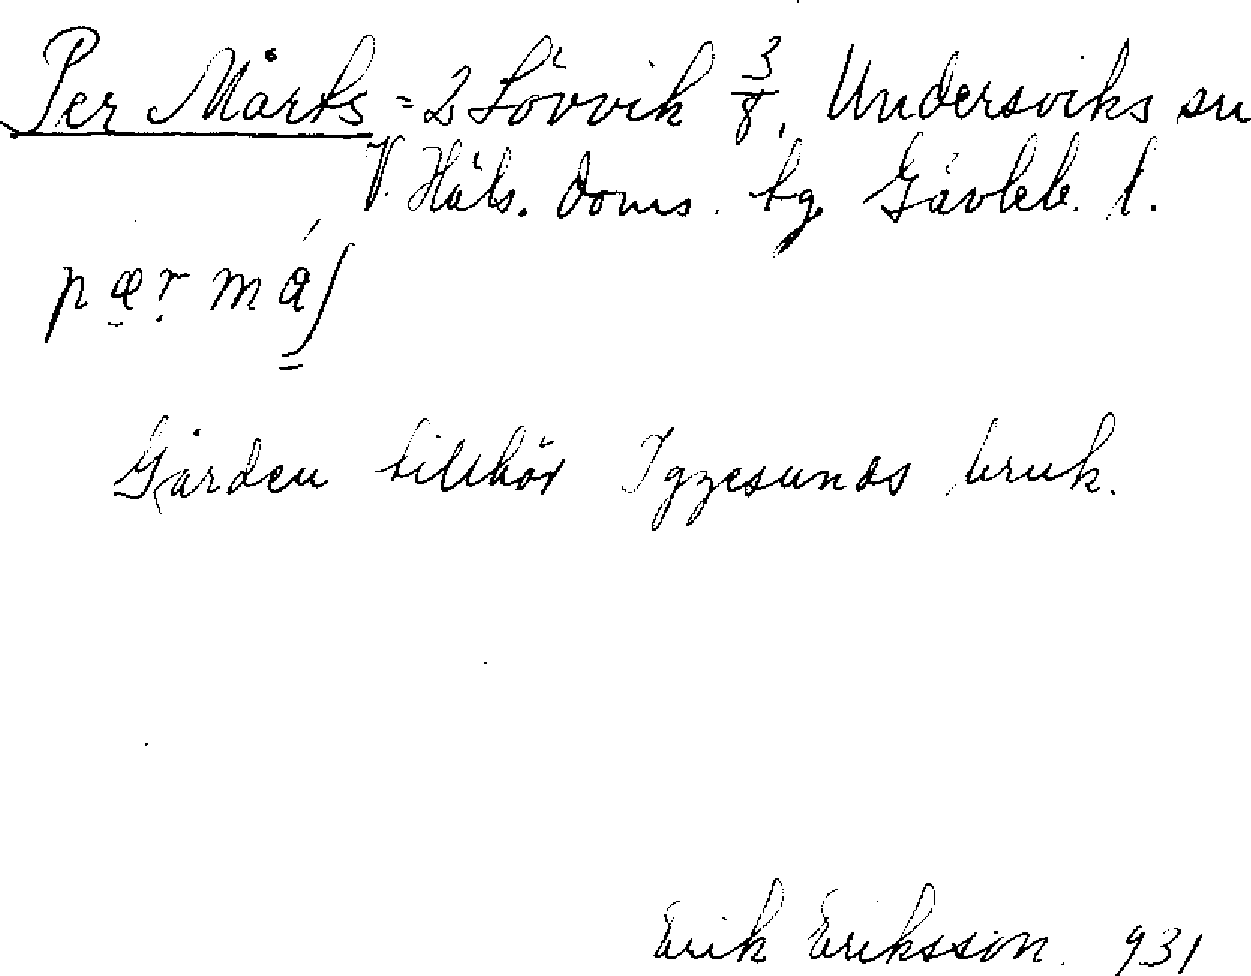 Per Mårts = 2 Lövvik 3/8, Undersviks sn
V. Häls. doms. tg. Gävleb. l.
pær måʃ
Gården tillhör Iggesunds bruk.
Erik Eriksson. 931